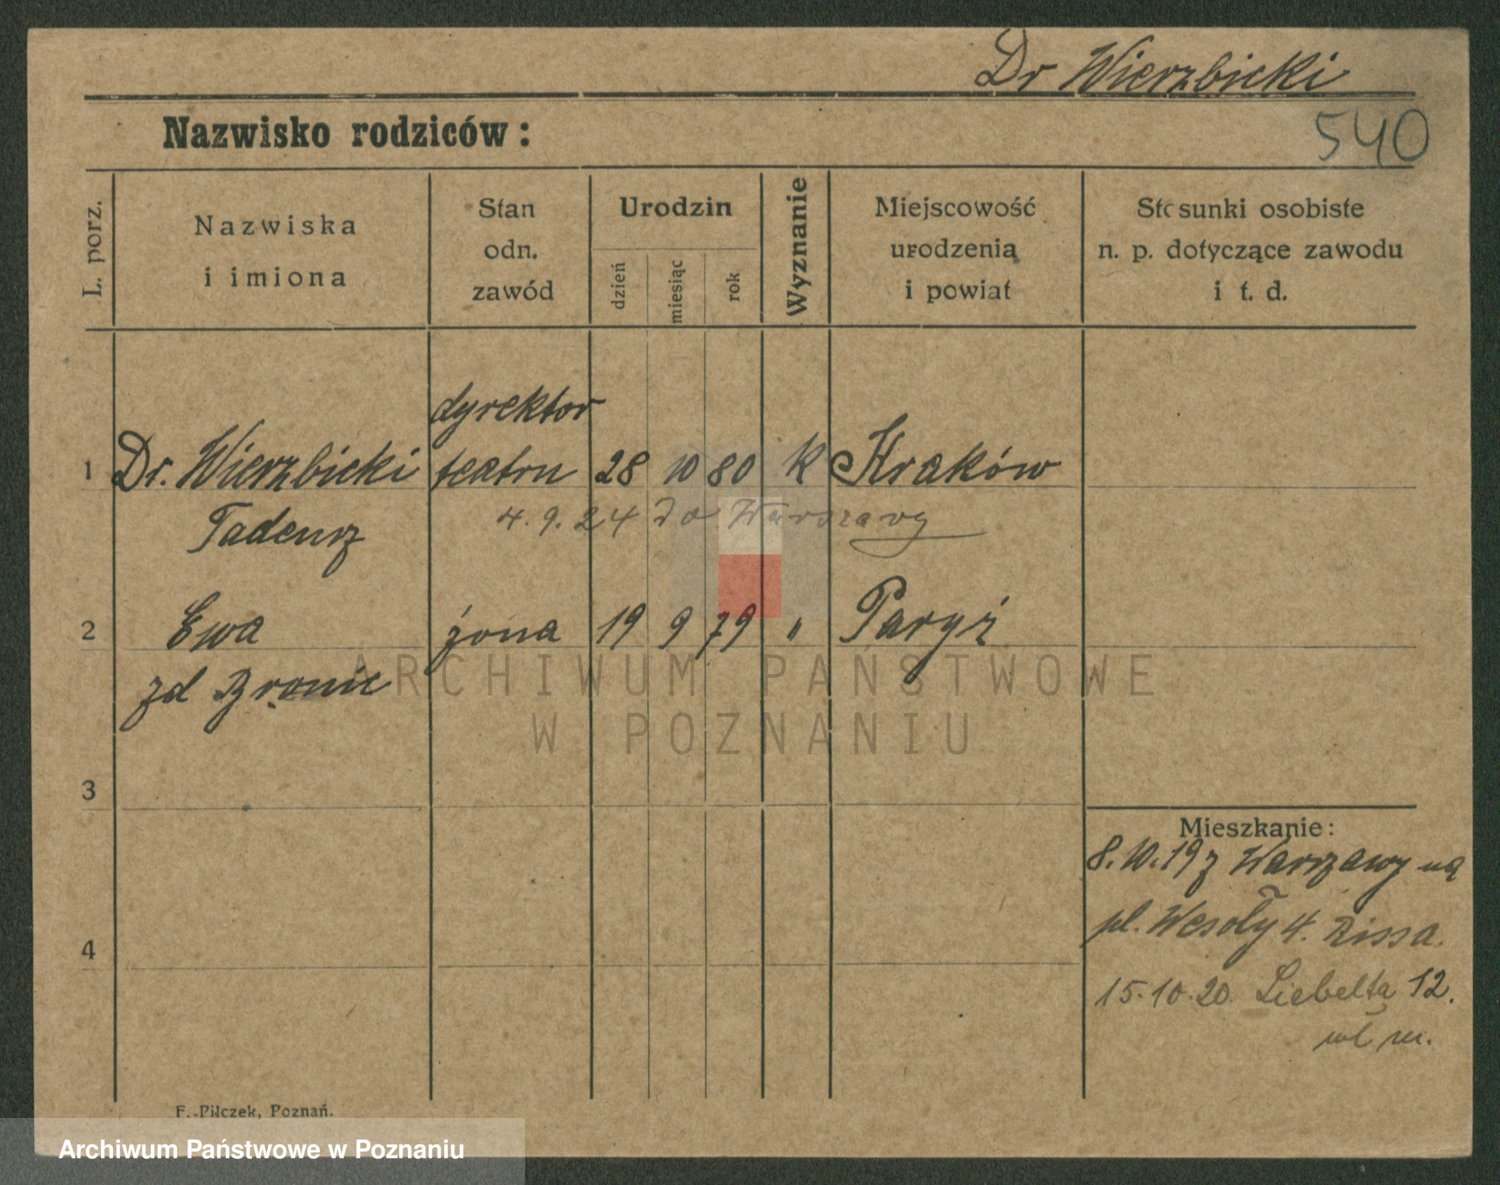 Dr Wierzbicki
540
Nazwisko rodziców:
L. porz.
Nazwiska
i imiona
Stan
odn.
zawód
Urodzin
dzień
miesiąc
rok
Wyznanie
Miejscowość
urodzenia
i powiat
Stosunki osobiste
n. p. dotyczące zawodu
i t. d.
dyrektor
1 Dr. Wierzbicki teatru 28 10 80 K Kraków
Tadeusz 4.9.24 do Warszawy
2 Ewa żona 19 9 79 " Paryż
zd Bronic
3
4
Mieszkanie:
8.10.19 z Warszawy na
pl. Wesoły 4. Rissa.
15.10.20. Liebelta 12.
wł m.
F. Pilczek, Poznań.
ARCHIWUM PAŃSTWOWE
W POZNANIU
Archiwum Państwowe w Poznaniu